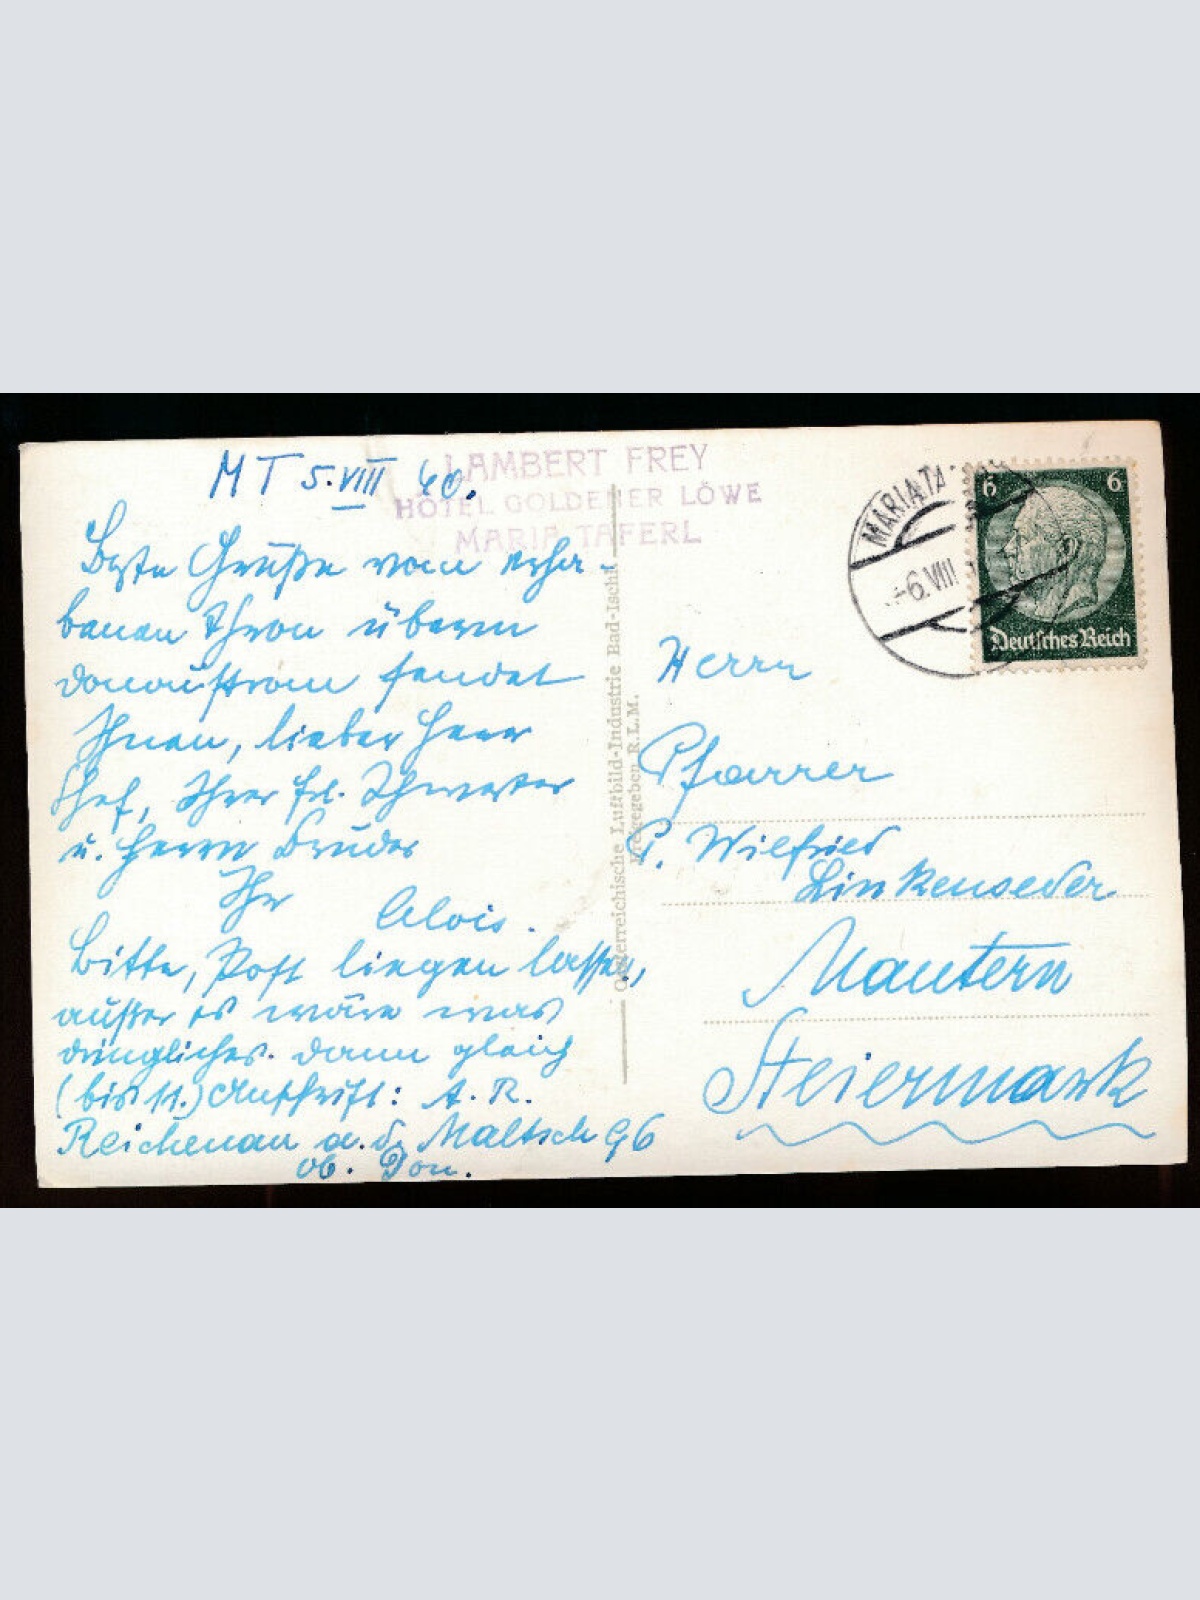 MT 5.VIII 40.
LAMBERT FREY
HOTEL GOLDENER LÖWE
MARIA TAFERL
Beste Grüße vom erha-
benen Thron überm
Donaustrom sendet
Ihnen, lieber Herr
Chef, Ihrer frl. Schwester
u. Herrn Bruder
Ihr Alois.
Bitte, Post liegen lassen,
außer es wäre was
dringliches. Dann gleich
(bis 11.) Anschrift: A. R.
Reichenau a. d. Maltsch 96
ob. Don.
Österreichische Luftbild-Industrie Bad-Ischl
Freigegeben R.L.M.
MARIA TA
-6.VIII
6 6
Deutsches Reich
Herrn
Pfarrer
P. Wilfried
Linkenseder
Mautern
Steiermark